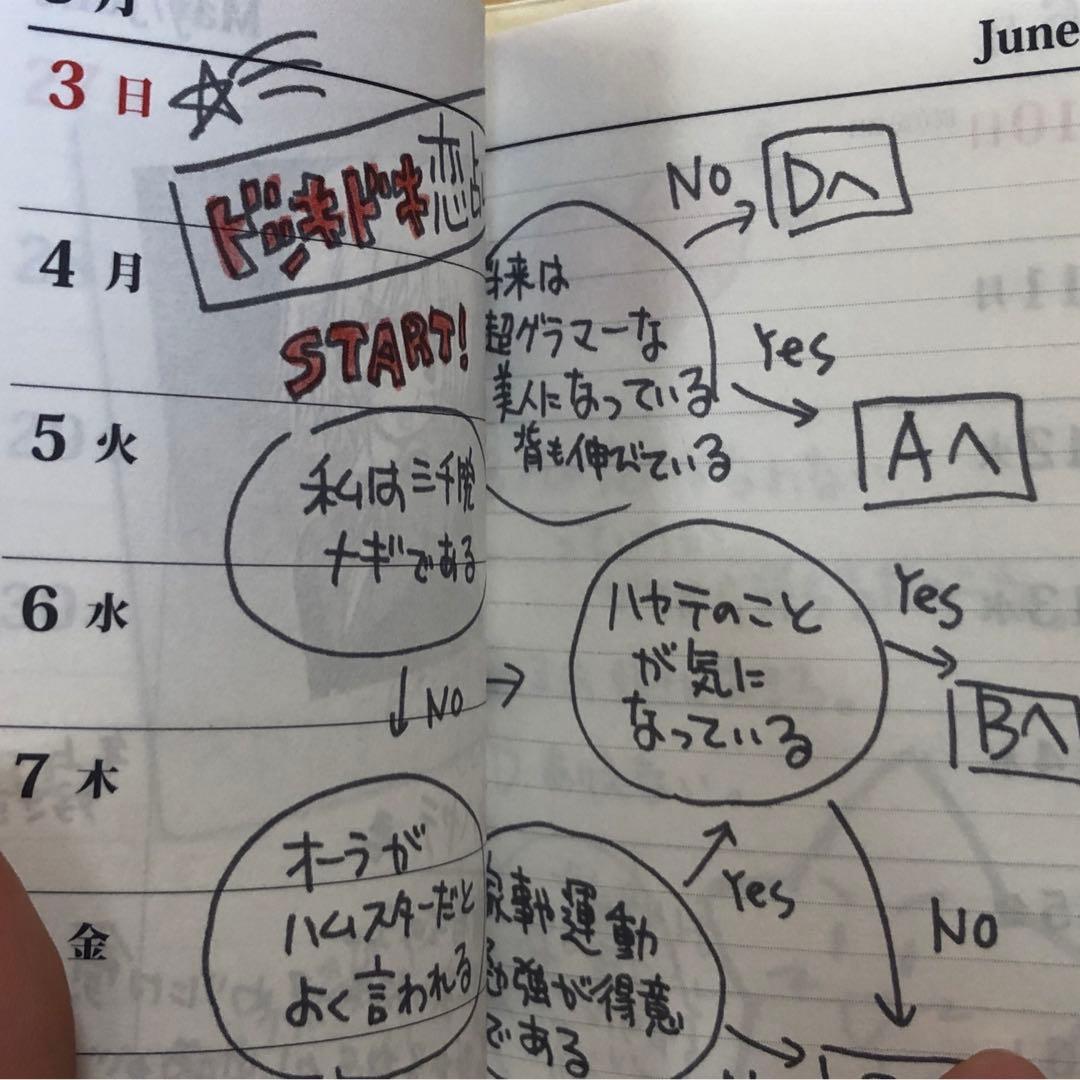 月
3 日
ドッキドキ恋占
4 月
START!
5 火
私は三千院
ナギである
6 水
NO
7 木
オーラが
ハムスターだと
よく言われる
金
June
NO
Dへ
将来は
超グラマーな
美人になっている
背も伸びている
Yes
Aへ
ハヤテのこと
が気に
なっている
Yes
Bへ
家事や運動
勉強が得意
である
Yes
NO